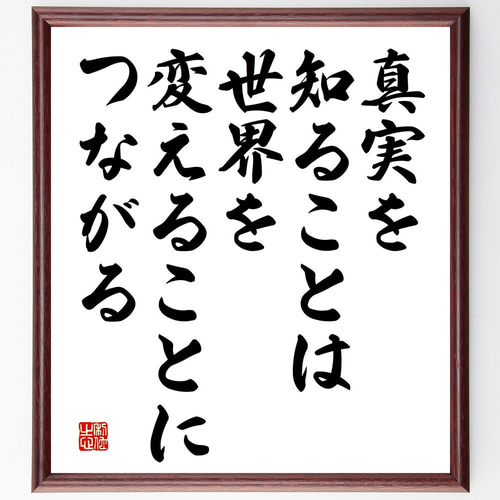 真実を
知ることは
世界を
変えることに
つながる